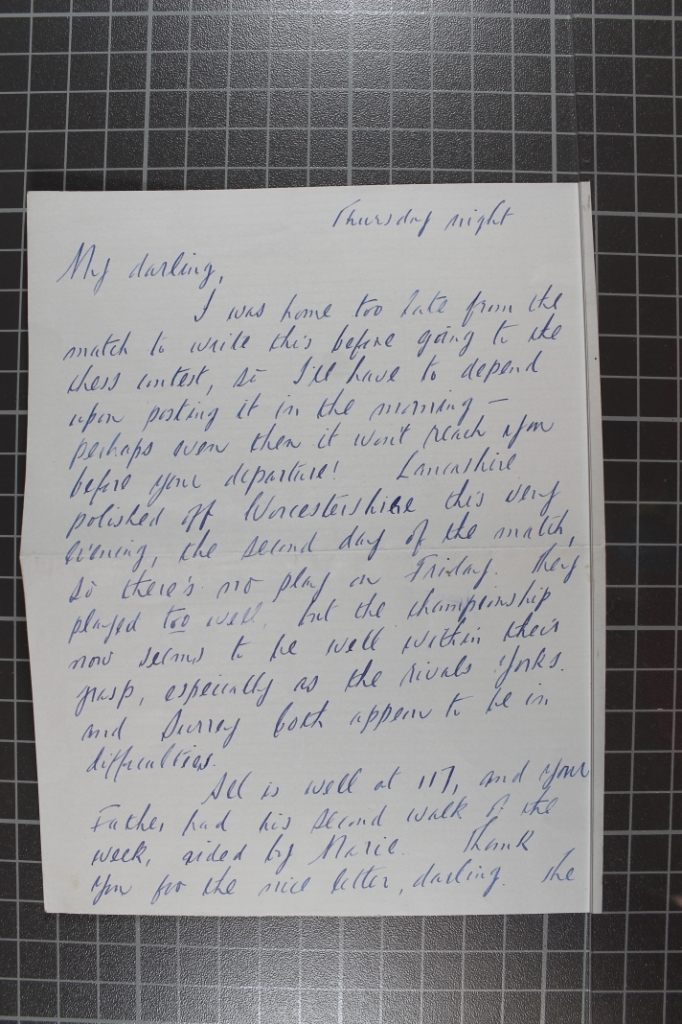 Thursday night
My darling,
I was home too late from the
match to write this before going to the
chess contest, so I'll have to depend
upon posting it in the morning —
perhaps even then it won't reach you
before your departure! Lancashire
polished off Worcestershire this very
evening, the second day of the match,
so there's no play on Friday. They
played too well, but the championship
now seems to be well within their
grasp, especially as the rivals Yorks.
and Surrey both appear to be in
difficulties.
All is well at 117, and your
Father had his second walk of the
week, aided by Marie. Thank
you for the nice letter, darling. The